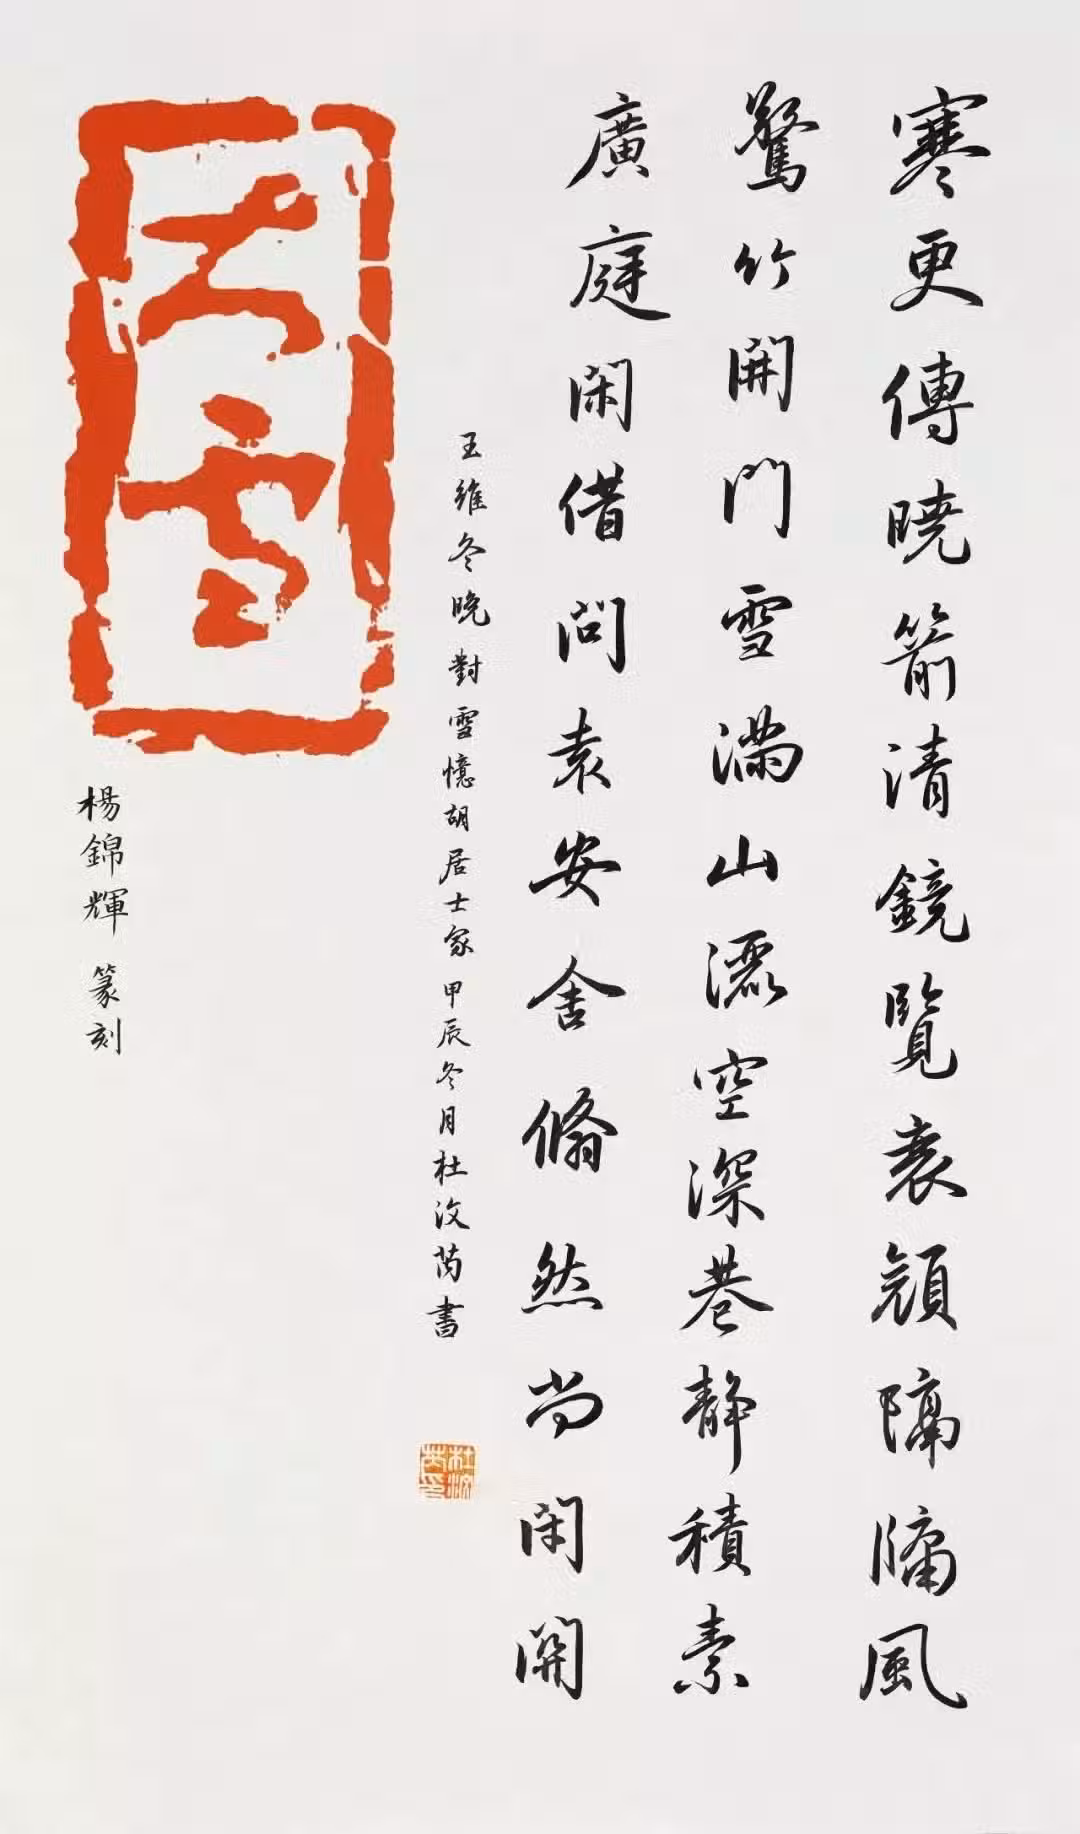 寒更傳曉箭清鏡覽衰顏隔牖風
驚竹開門雪滿山灑空深巷靜積素
廣庭閑借問袁安舍翛然尚閉關
王維冬晚對雪憶胡居士家甲辰冬月杜汶芮書
杜汶芮印
大雪
楊錦輝 篆刻